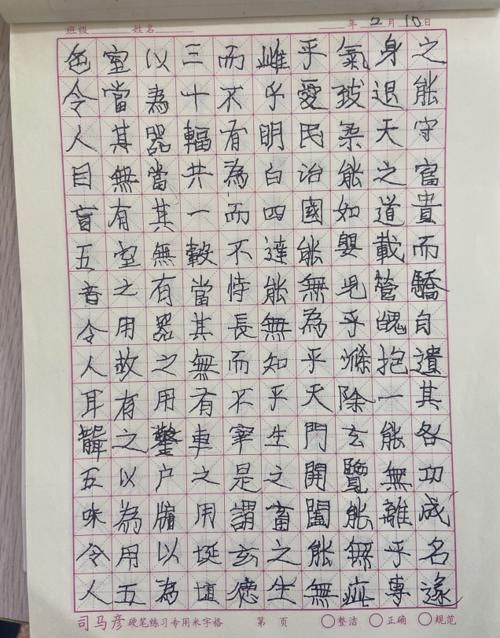 班级 姓名 年2月10日
之能守富貴而驕自遺其各功成名遂
身退天之道載管魄抱一能無離乎專
氣致柔能如嬰兒乎滌除玄覽能無疵
乎愛民治國能無為乎天門開闔能無
雌乎明白四達能無知乎生之畜之生
而不有為而不恃長而不宰是謂玄德
三十輻共一轂當其無有車之用埏埴
以為器當其無有器之用鑿户牖以為
室當其無有室之用故有之以為用五
色令人目盲五音令人耳聾五味令人
司马彦硬笔练习专用米字格 第 页 整洁 正确 规范